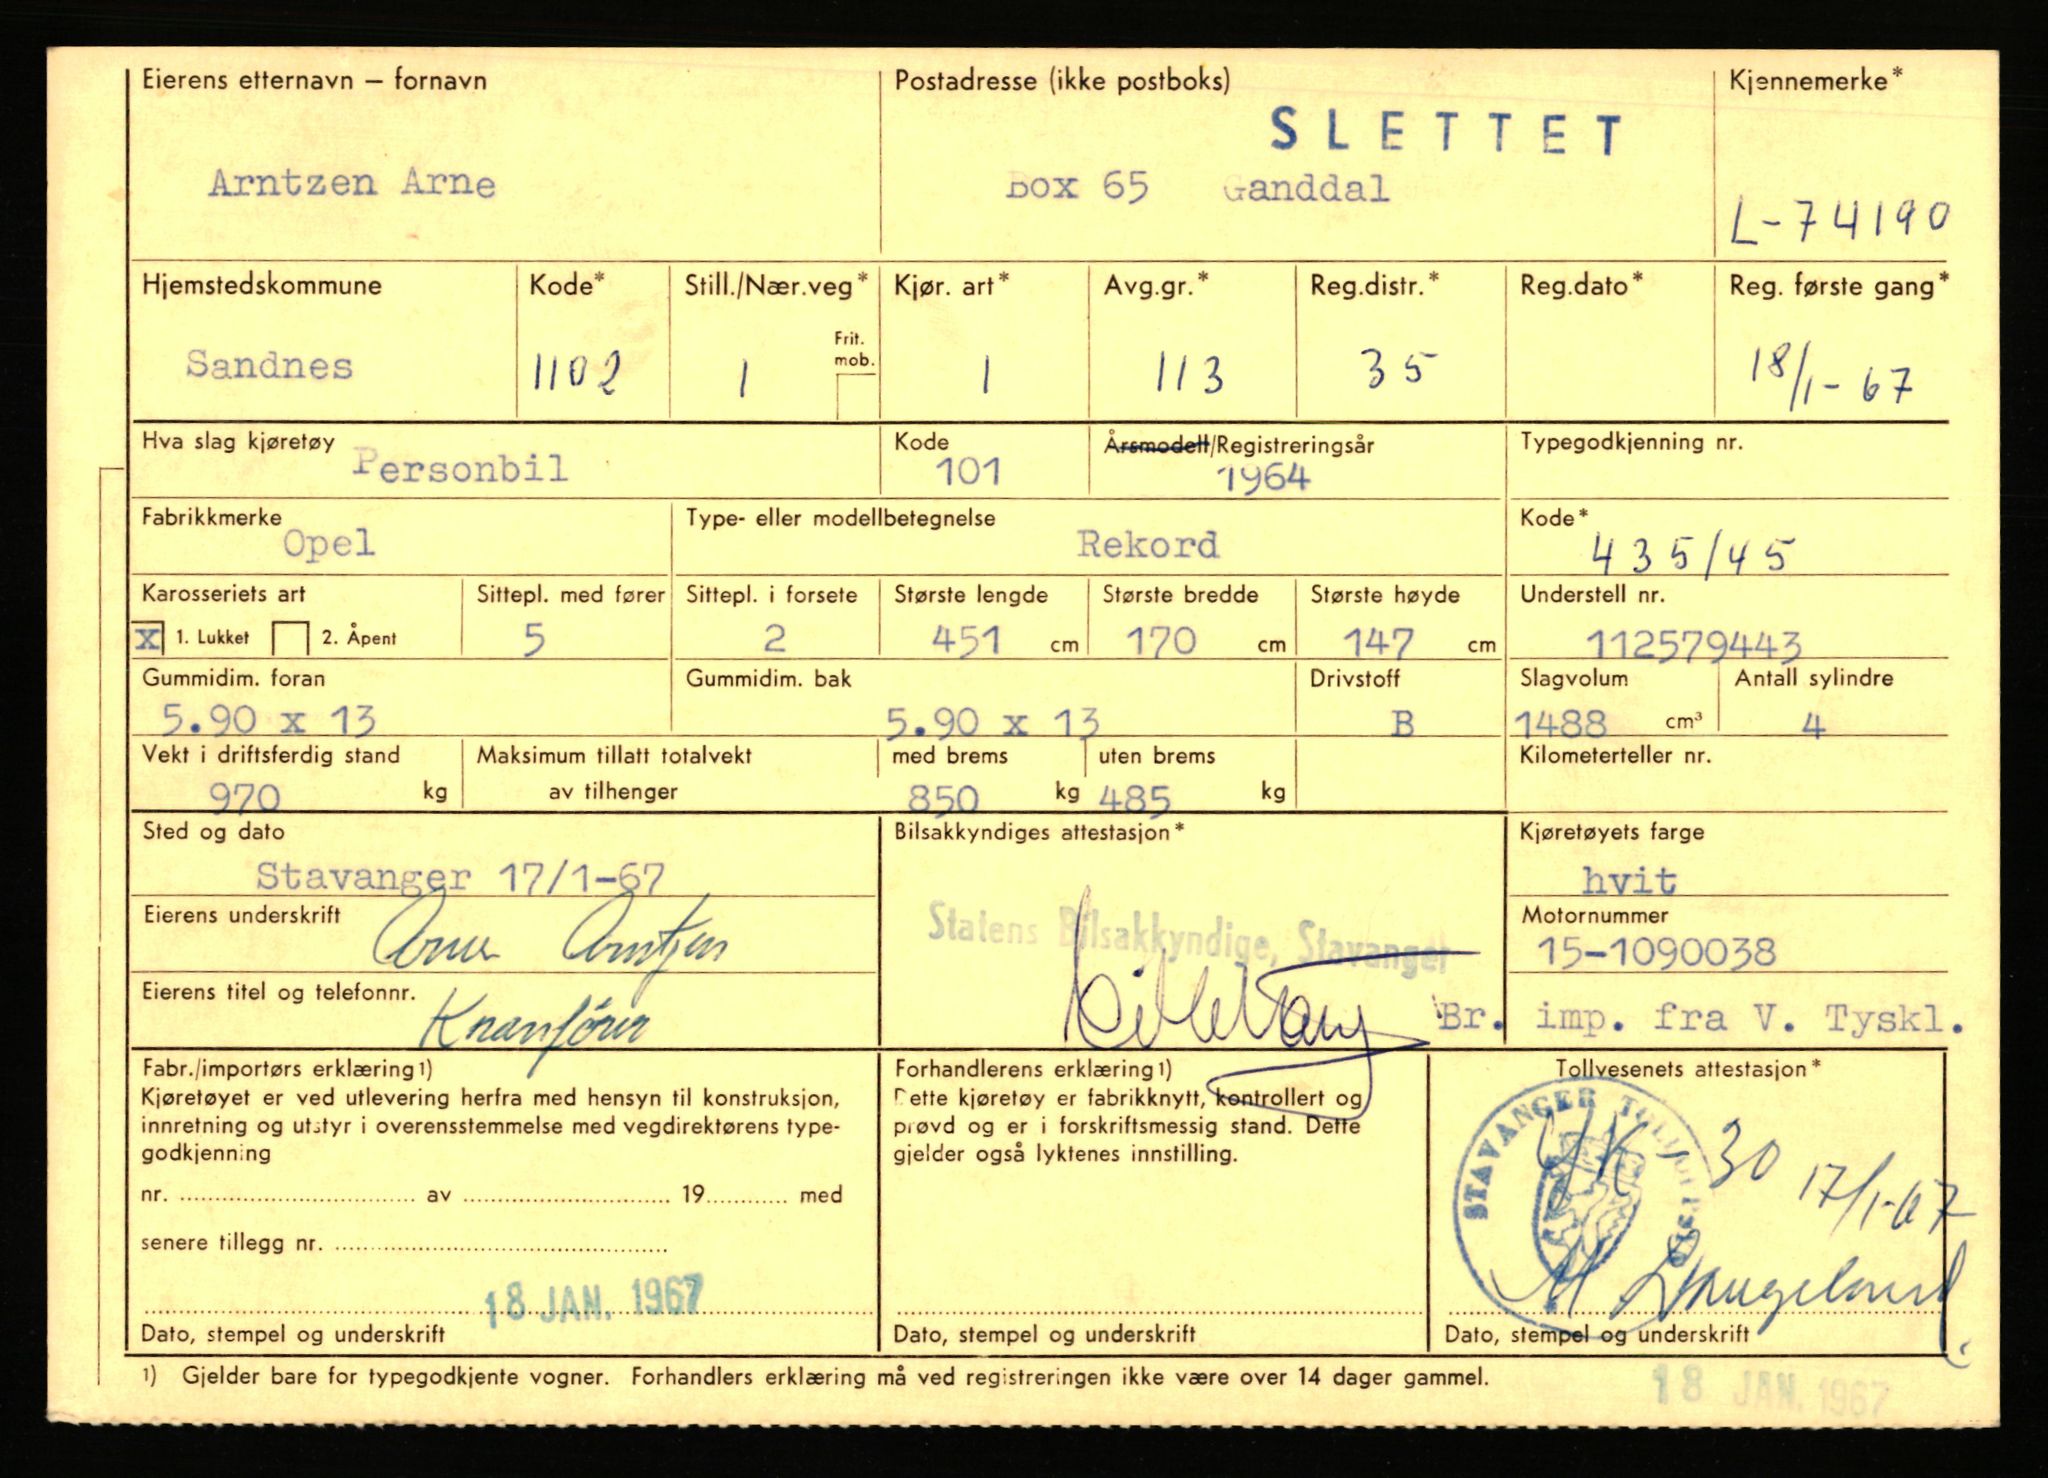 Eierens etternavn – fornavn
Postadresse (ikke postboks)
Kjennemerke*
SLETTET
Arntzen Arne
Box 65 Ganddal
L-74190
Hjemstedskommune
Kode*
Still./Nær.veg*
Kjør. art*
Avg.gr.*
Reg.distr.*
Reg.dato*
Reg. første gang*
Frit. mob.
Sandnes
1102
1
1
113
35
18/1-67
Hva slag kjøretøy
Personbil
Kode
101
Årsmodell/Registreringsår
1964
Typegodkjenning nr.
Fabrikkmerke
Opel
Type- eller modellbetegnelse
Rekord
Kode*
435/45
Karosseriets art
Sittepl. med fører
Sittepl. i forsete
Største lengde
Største bredde
Største høyde
Understell nr.
X 1. Lukket 2. Åpent
5
2
451 cm
170 cm
147 cm
112579443
Gummidim. foran
Gummidim. bak
Drivstoff
Slagvolum
Antall sylindre
5.90 x 13
5.90 x 13
B
1488 cm³
4
Vekt i driftsferdig stand
Maksimum tillatt totalvekt
med brems
uten brems
Kilometerteller nr.
970 kg
av tilhenger
850 kg
485 kg
Sted og dato
Bilsakkyndiges attestasjon*
Kjøretøyets farge
Stavanger 17/1-67
hvit
Eierens underskrift
Arne Arntzen
Statens Bilsakkyndige, Stavanger
Motornummer
15-1090038
Eierens titel og telefonnr.
Kranfører
Br. imp. fra V. Tyskl.
Fabr./importørs erklæring1)
Kjøretøyet er ved utlevering herfra med hensyn til konstruksjon,
innretning og utstyr i overensstemmelse med vegdirektørens type-
godkjenning
nr. av 19 med
senere tillegg nr.
18 JAN. 1967
Dato, stempel og underskrift
Forhandlerens erklæring1)
Dette kjøretøy er fabrikknytt, kontrollert og
prøvd og er i forskriftsmessig stand. Dette
gjelder også lyktenes innstilling.
Dato, stempel og underskrift
Tollvesenets attestasjon*
STAVANGER
30 17/1-67
Dato, stempel og underskrift
1) Gjelder bare for typegodkjente vogner. Forhandlers erklæring må ved registreringen ikke være over 14 dager gammel.
18 JAN. 1967